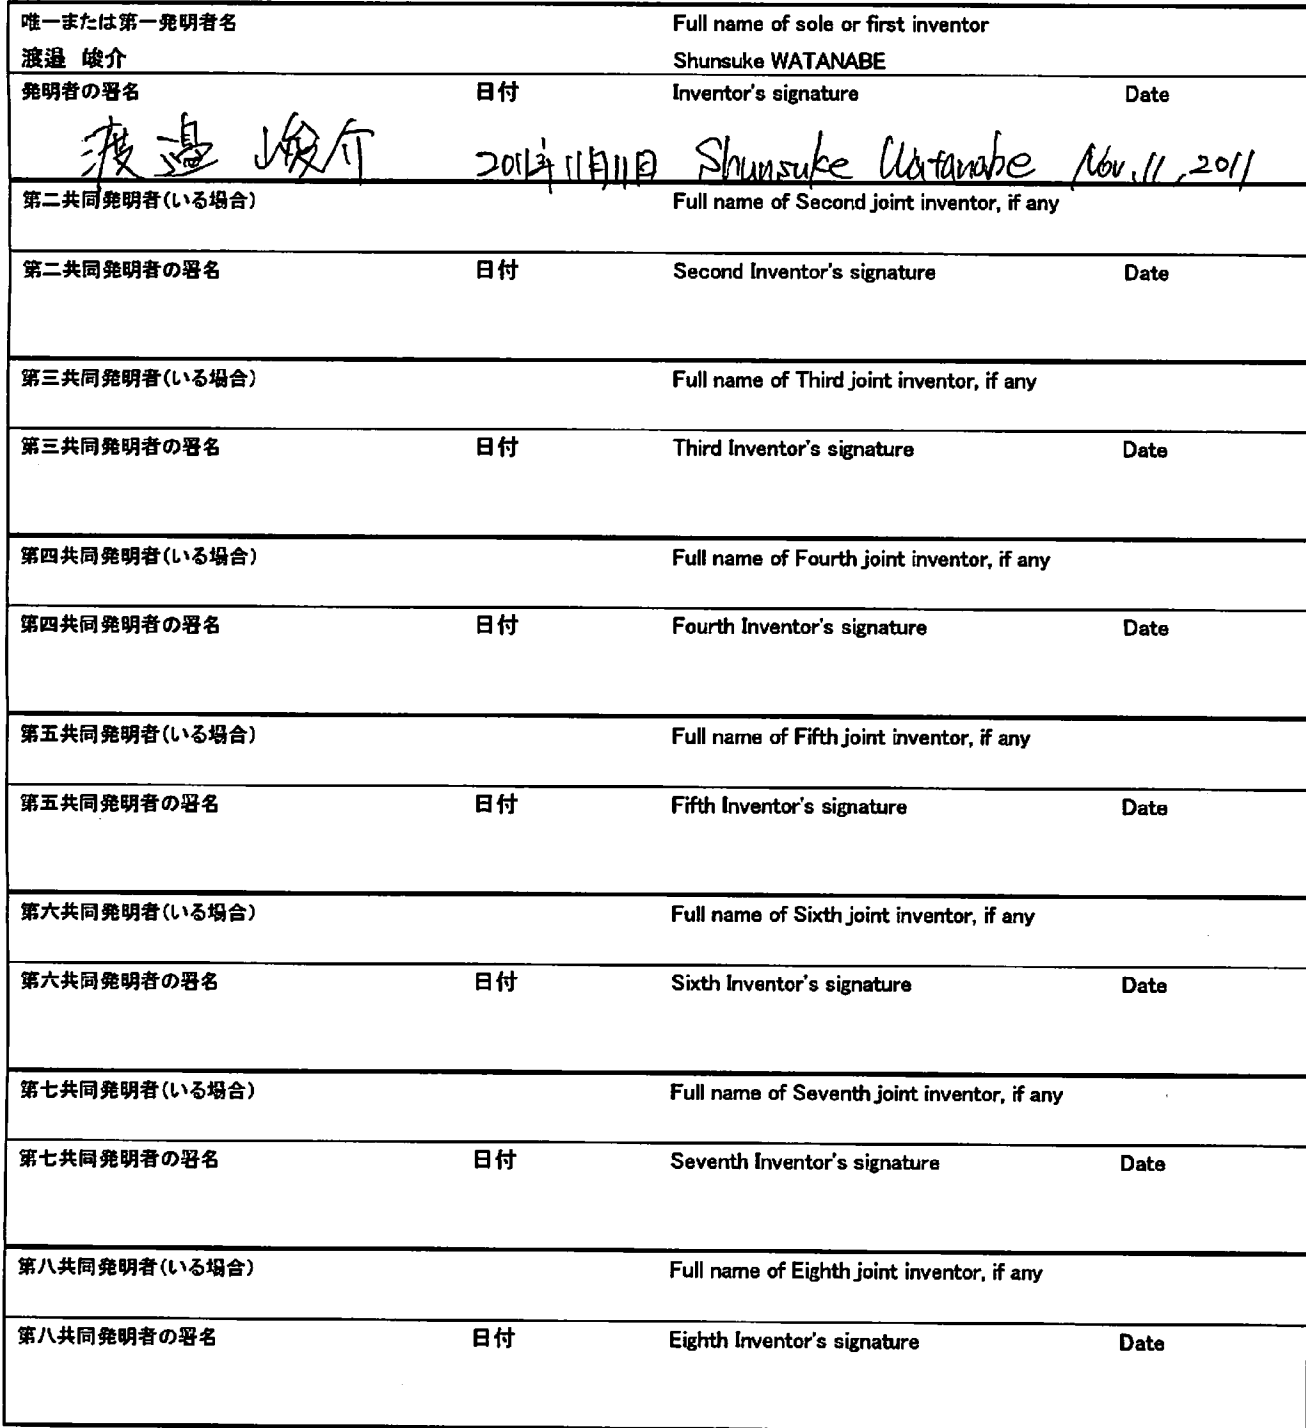 唯一または第一発明者名 Full name of sole or first inventor
渡邉 峻介 Shunsuke WATANABE
発明者の署名 日付 Inventor's signature Date
渡邉 峻介 2011年11月11日 Shunsuke Watanabe Nov. 11, 2011
第二共同発明者(いる場合) Full name of Second joint inventor, if any
第二共同発明者の署名 日付 Second Inventor's signature Date
第三共同発明者(いる場合) Full name of Third joint inventor, if any
第三共同発明者の署名 日付 Third Inventor's signature Date
第四共同発明者(いる場合) Full name of Fourth joint inventor, if any
第四共同発明者の署名 日付 Fourth Inventor's signature Date
第五共同発明者(いる場合) Full name of Fifth joint inventor, if any
第五共同発明者の署名 日付 Fifth Inventor's signature Date
第六共同発明者(いる場合) Full name of Sixth joint inventor, if any
第六共同発明者の署名 日付 Sixth Inventor's signature Date
第七共同発明者(いる場合) Full name of Seventh joint inventor, if any
第七共同発明者の署名 日付 Seventh Inventor's signature Date
第八共同発明者(いる場合) Full name of Eighth joint inventor, if any
第八共同発明者の署名 日付 Eighth Inventor's signature Date